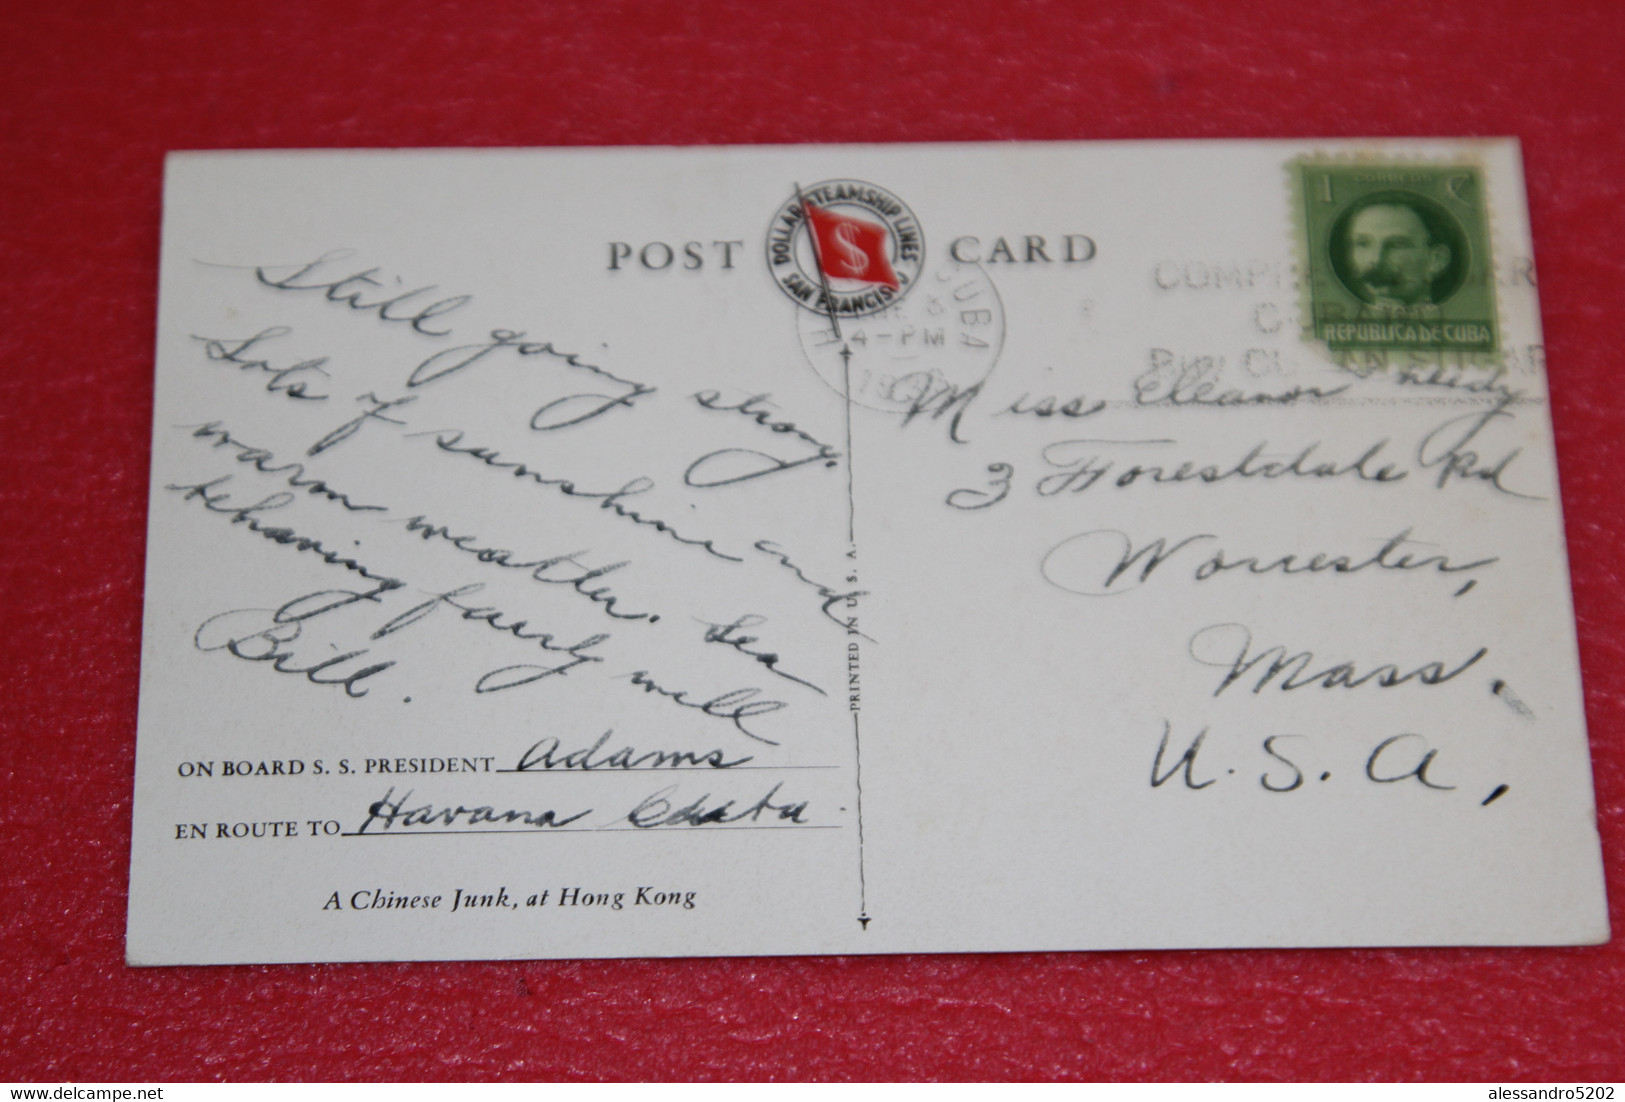 POST CARD
DOLLAR STEAMSHIP LINES
SAN FRANCISCO
$
1 CORREOS C
REPUBLICA DE CUBA
CUBA
4-PM
COMPRE
CUBAN SUGAR
Still going strong.
Lots of sunshine and
warm weather. Sea
behaving fairly well
Bill.
ON BOARD S. S. PRESIDENT Adams
EN ROUTE TO Havana Cuba
A Chinese Junk, at Hong Kong
PRINTED IN U. S. A.
Miss Eleanor
3 Forestdale Rd
Worcester,
Mass.
U. S. A,
alessandro5202